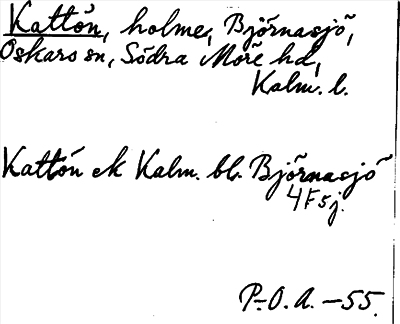 Kattön, holme, Björnasjö,
Oskars sn, Södra Möre hd,
Kalm. l.
Kattön ek Kalm. bl. Björnasjö
4 F 5 j.
P.-O. A. -55.